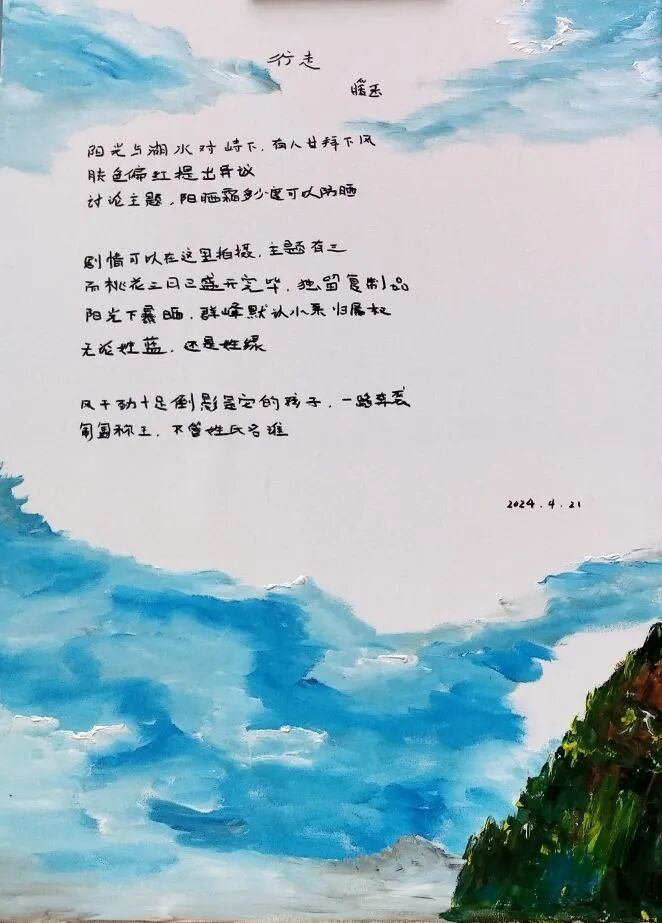 行走
暖玉
阳光与湖水对峙下，有人甘拜下风
肤色偏红提出异议
讨论主题，阳晒霜多少度可以防晒
剧情可以在这里拍摄，主题有三
而桃花三月已盛开完毕，独留复制品
阳光下暴晒，群峰默认水系归属权
无论姓蓝，还是姓绿
风干劲十足倒影是它的孩子，一路奔袭
匍匐称王，不管姓氏名谁
2024.4.21